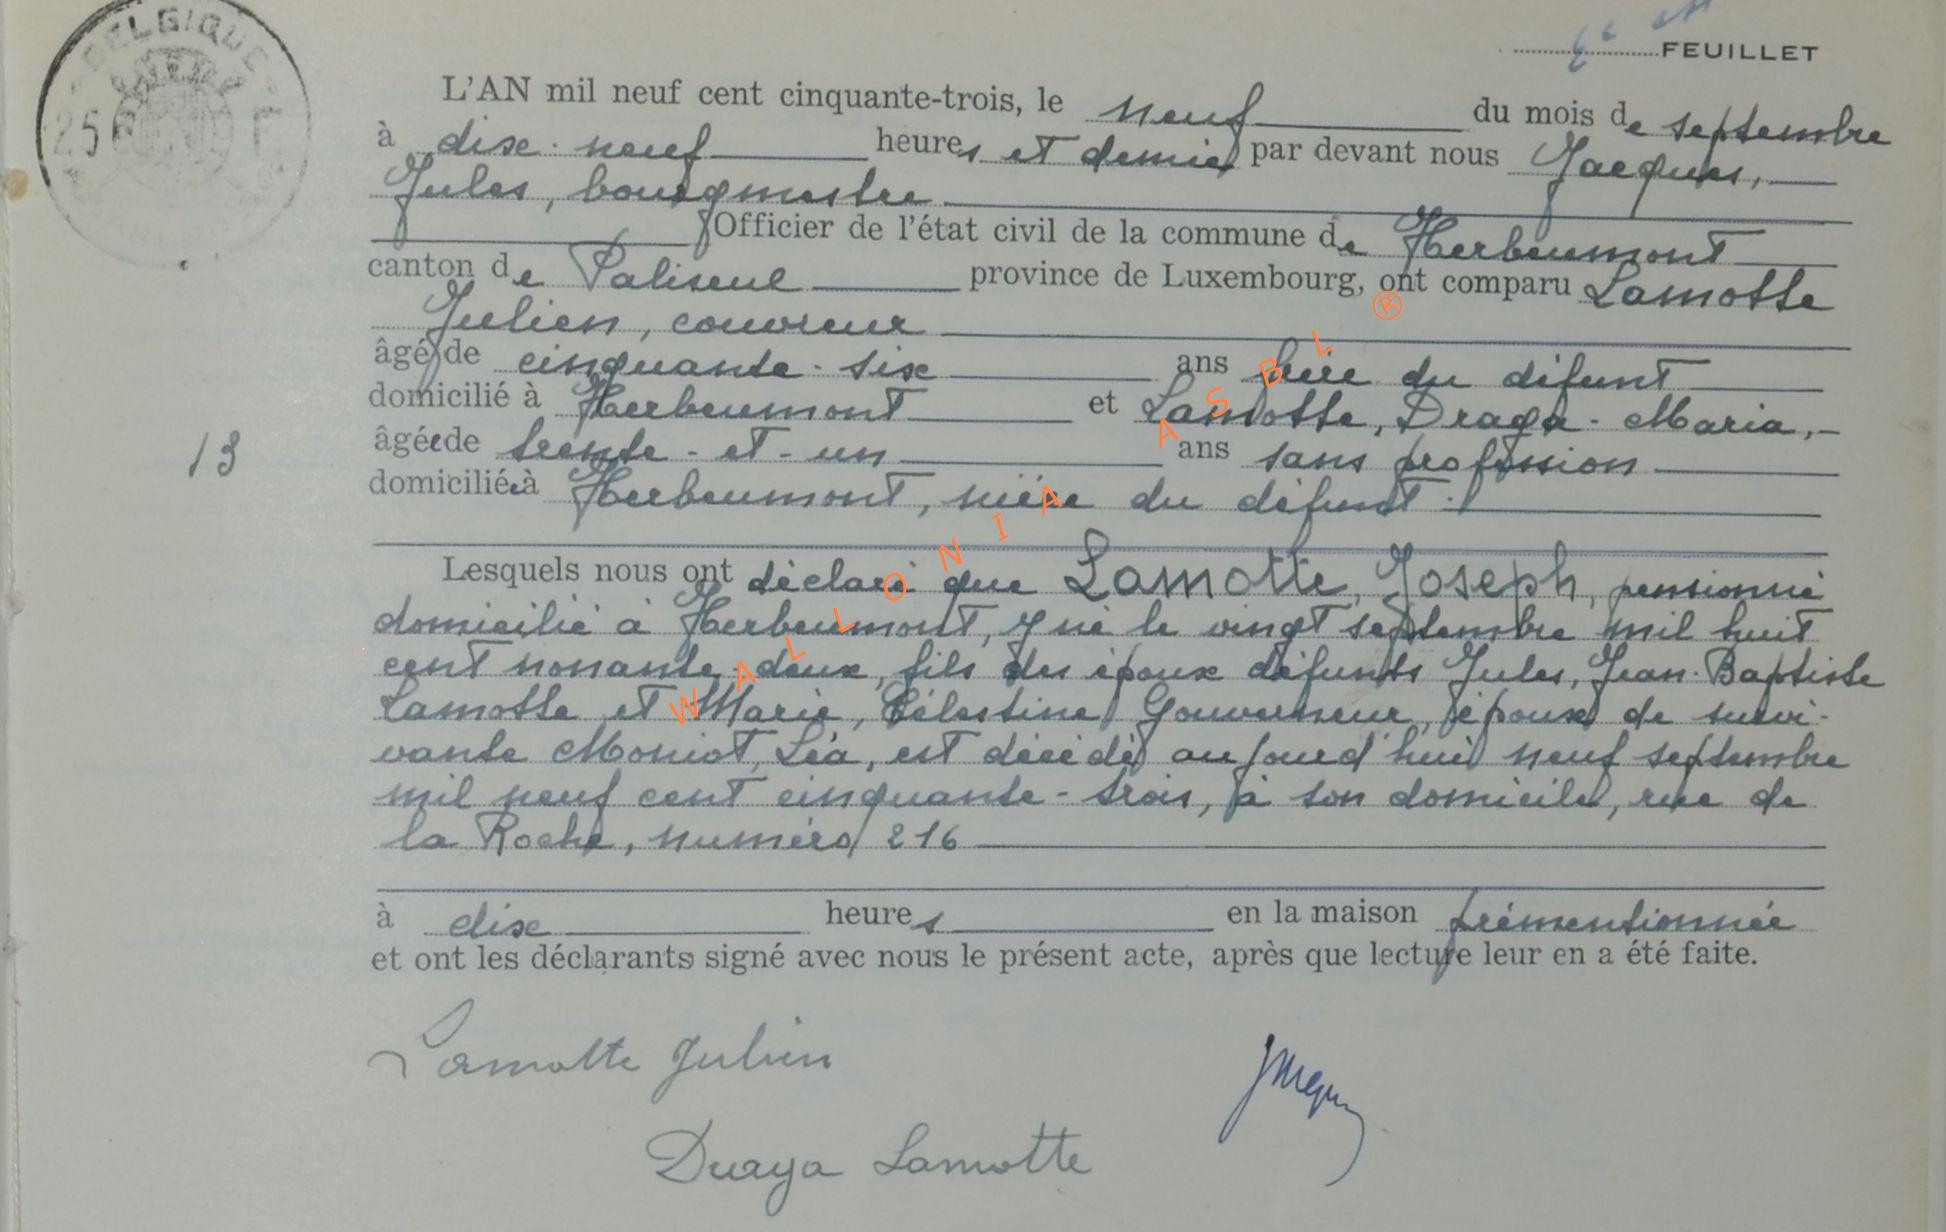 BELGIQUE
25
FEUILLET
L'AN mil neuf cent cinquante-trois, le neuf du mois de septembre
à dix-neuf heures et demie par devant nous Jacques,
Jules, bourgmestre
Officier de l'état civil de la commune de Herbeumont
canton de Paliseul province de Luxembourg, ont comparu Lamotte
Julien, couvreur
âgé de cinquante-six ans frère du défunt
domicilié à Herbeumont et Lamotte, Draga-Maria,
13
âgée de trente-et-un ans sans profession
domiciliée à Herbeumont, nièce du défunt.
Lesquels nous ont déclaré que Lamotte, Joseph, pensionné
domicilié à Herbeumont, y né le vingt septembre mil huit
cent nonante-deux, fils des époux défunts Jules, Jean-Baptiste
Lamotte et Marie, Célestine Gouverneur, époux de survi-
vante Moniot, Léa, est décédé aujourd'hui neuf septembre
mil neuf cent cinquante-trois, à son domicile, rue de
la Roche, numéro 216
à dix heures en la maison prémentionnée
et ont les déclarants signé avec nous le présent acte, après que lecture leur en a été faite.
Lamotte Julien
Jacques
Draga Lamotte
WALLONIA ASBL ®